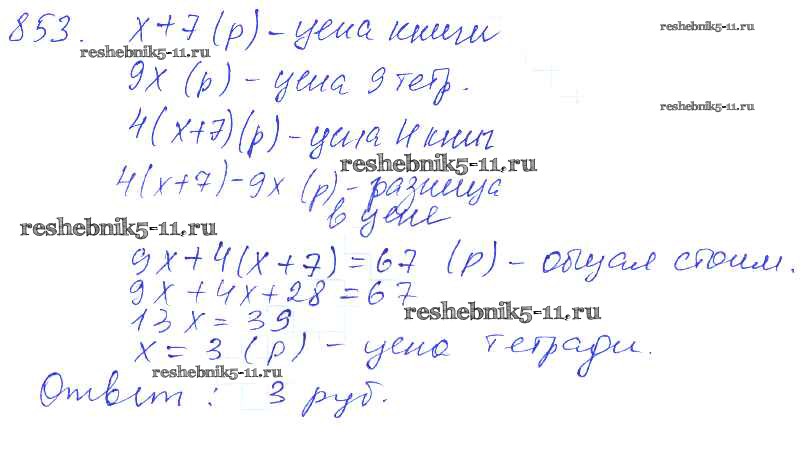 853. x+7 (р) – цена книги
reshebnik5-11.ru
reshebnik5-11.ru
9x (р) – цена 9 тетр.
reshebnik5-11.ru
4(x+7)(р) – цена 4 книг
reshebnik5-11.ru
4(x+7)-9x (р) – разница
в цене
reshebnik5-11.ru
9x+4(x+7)=67 (р) – общая стоим.
9x+4x+28=67
reshebnik5-11.ru
13x=39
x=3 (р) – цена тетради.
reshebnik5-11.ru
Ответ: 3 руб.